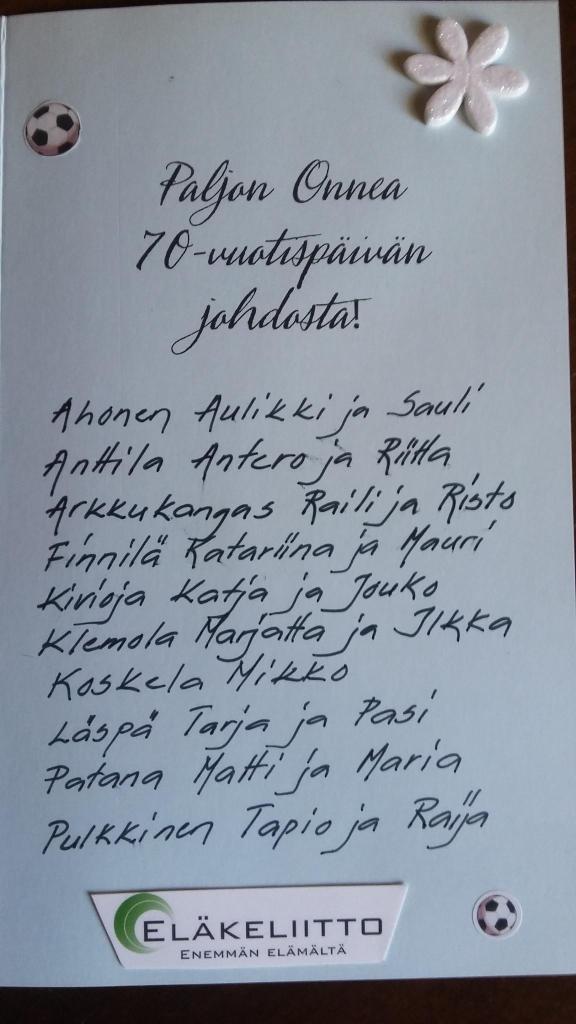 Paljon Onnea
70-vuotispäivän
johdosta!
Ahonen Aulikki ja Sauli
Anttila Antero ja Riitta
Arkkukangas Raili ja Risto
Finnilä Katariina ja Mauri
Kivioja Katja ja Jouko
Klemola Marjatta ja Ilkka
Koskela Mikko
Läspä Tarja ja Pasi
Patana Matti ja Maria
Pulkkinen Tapio ja Raija
ELÄKELIITTO
ENEMMÄN ELÄMÄLTÄ